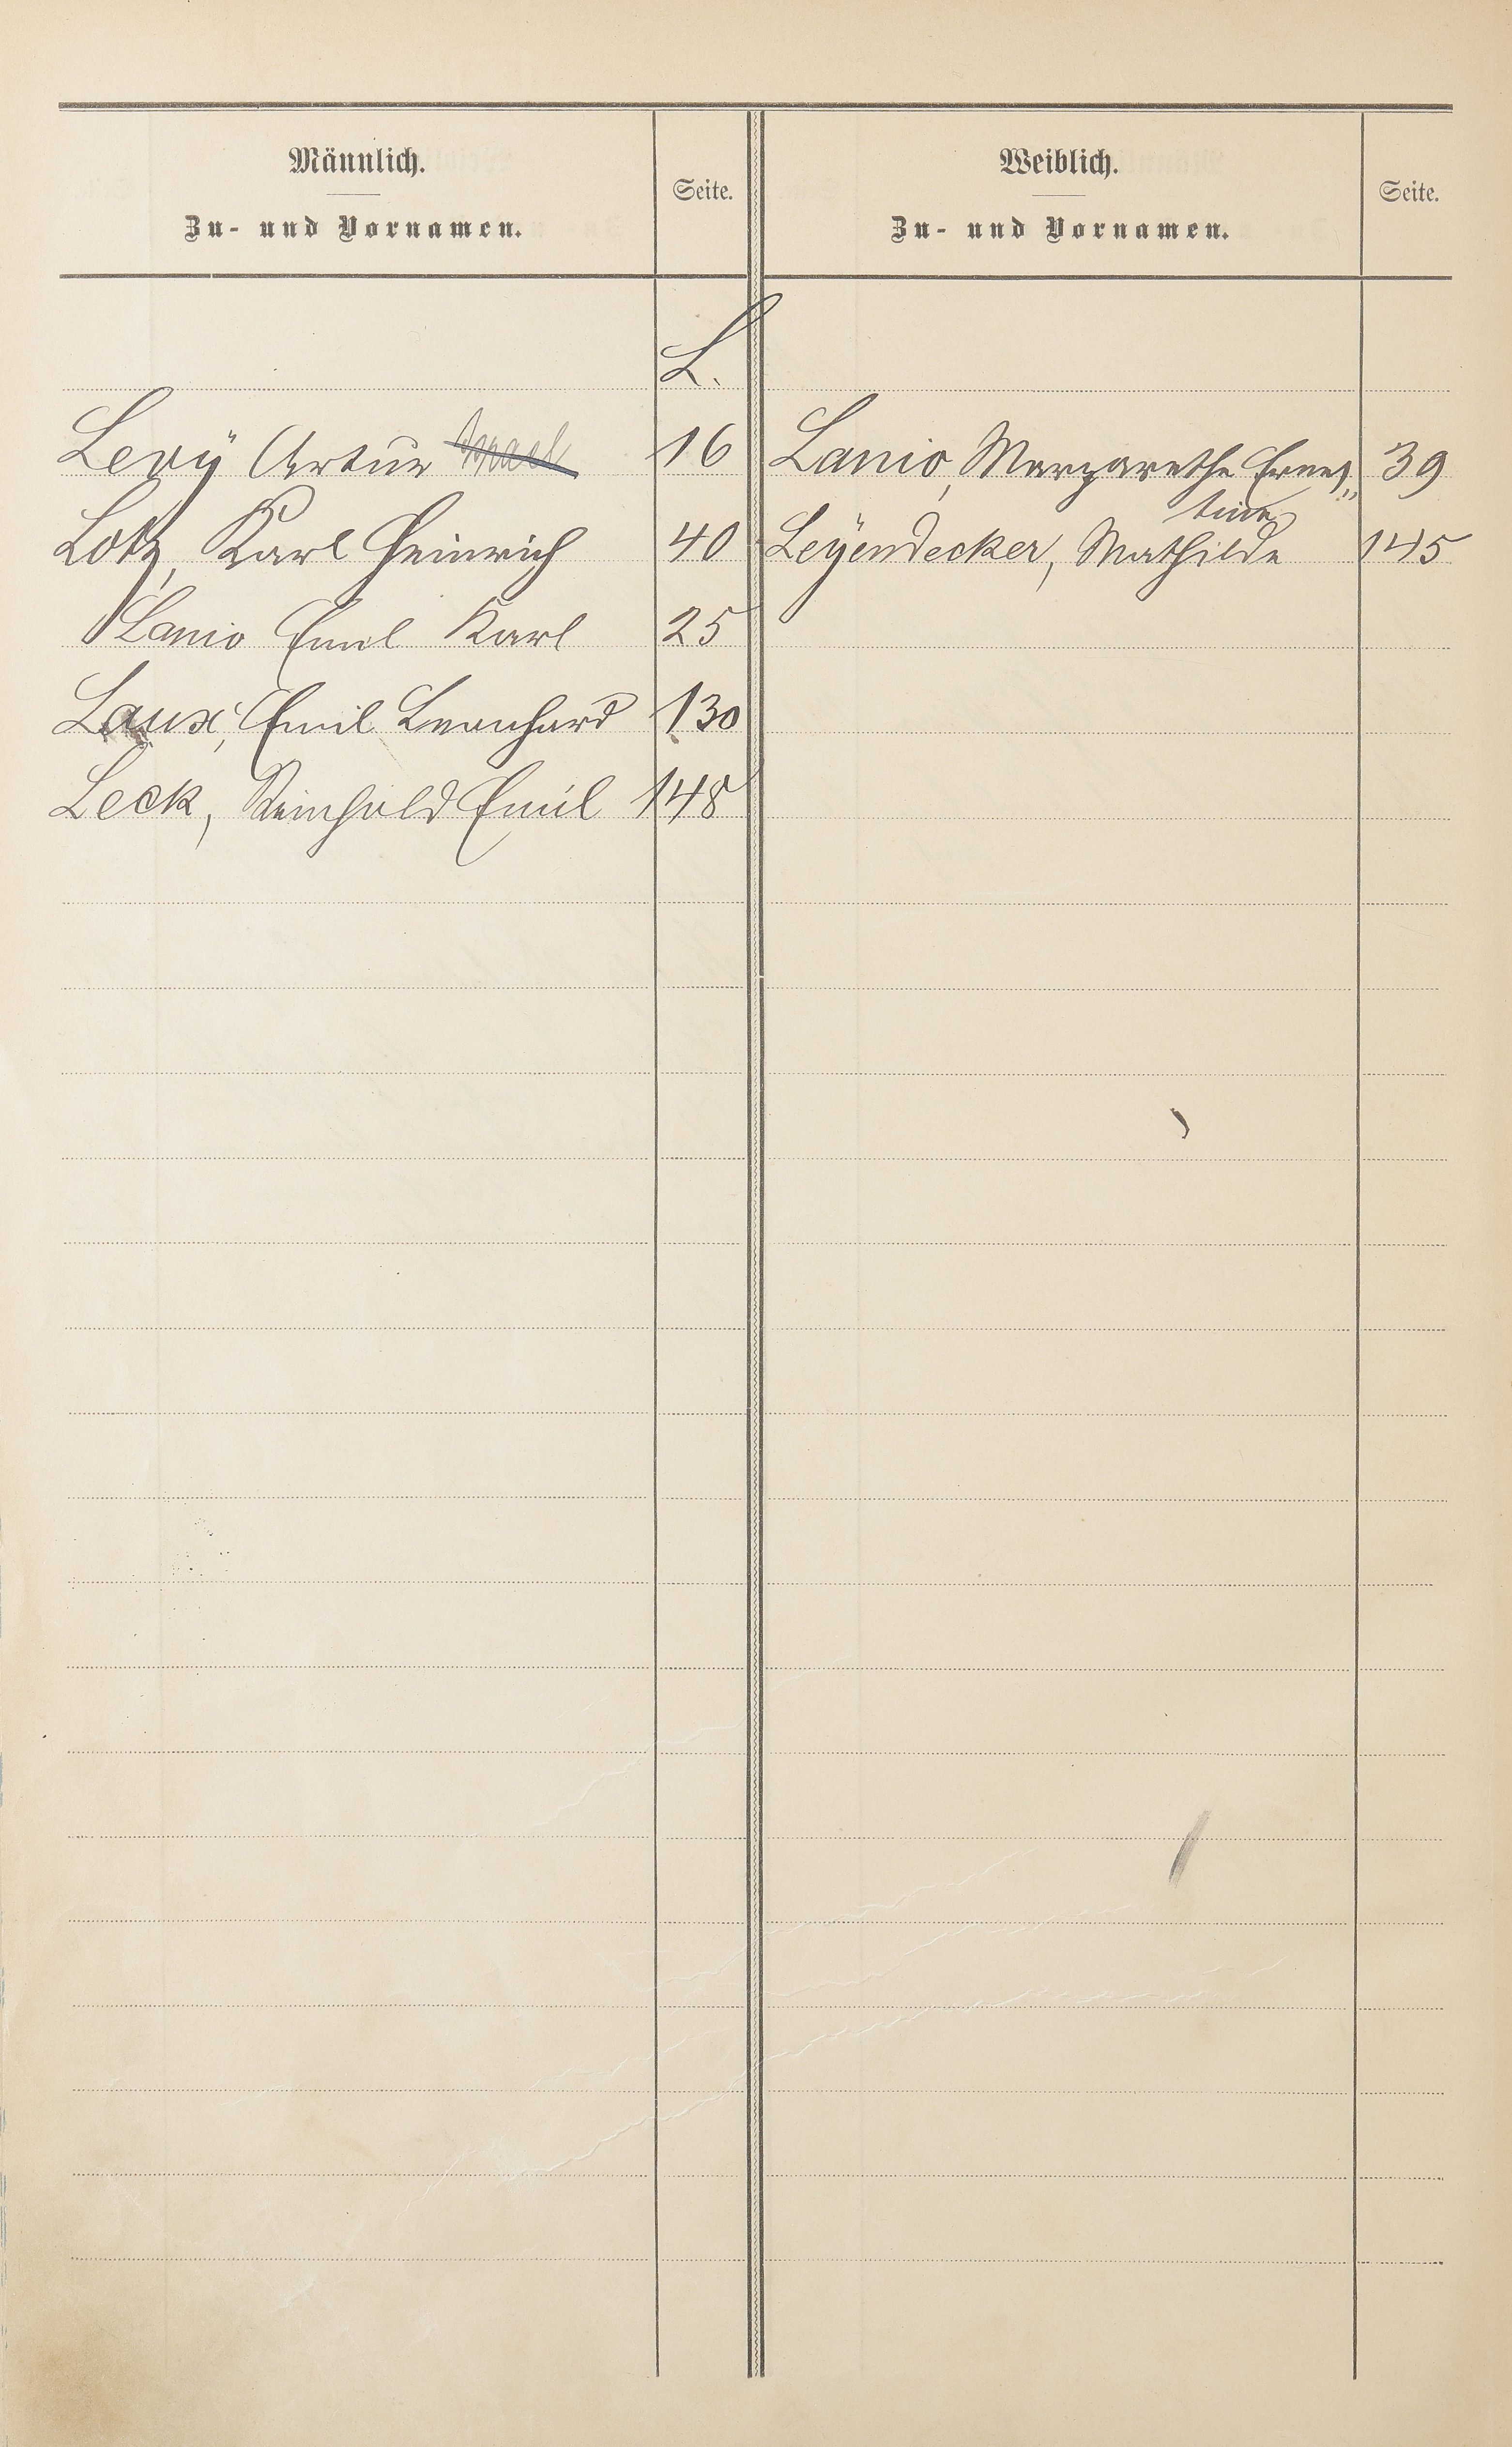 Männlich.
Zu- und Vornamen.
Seite.
Weiblich.
Zu- und Vornamen.
Seite.
L.
Levÿ Artur Israel 16
Lotz, Karl Heinrich 40
Lanio Emil Karl 25
Laux, Emil Leonhard 130
Leck, Reinhold Emil 148
Lanio, Margarethe Ernes„ 39
tine
Leÿendecker, Mathilde 145